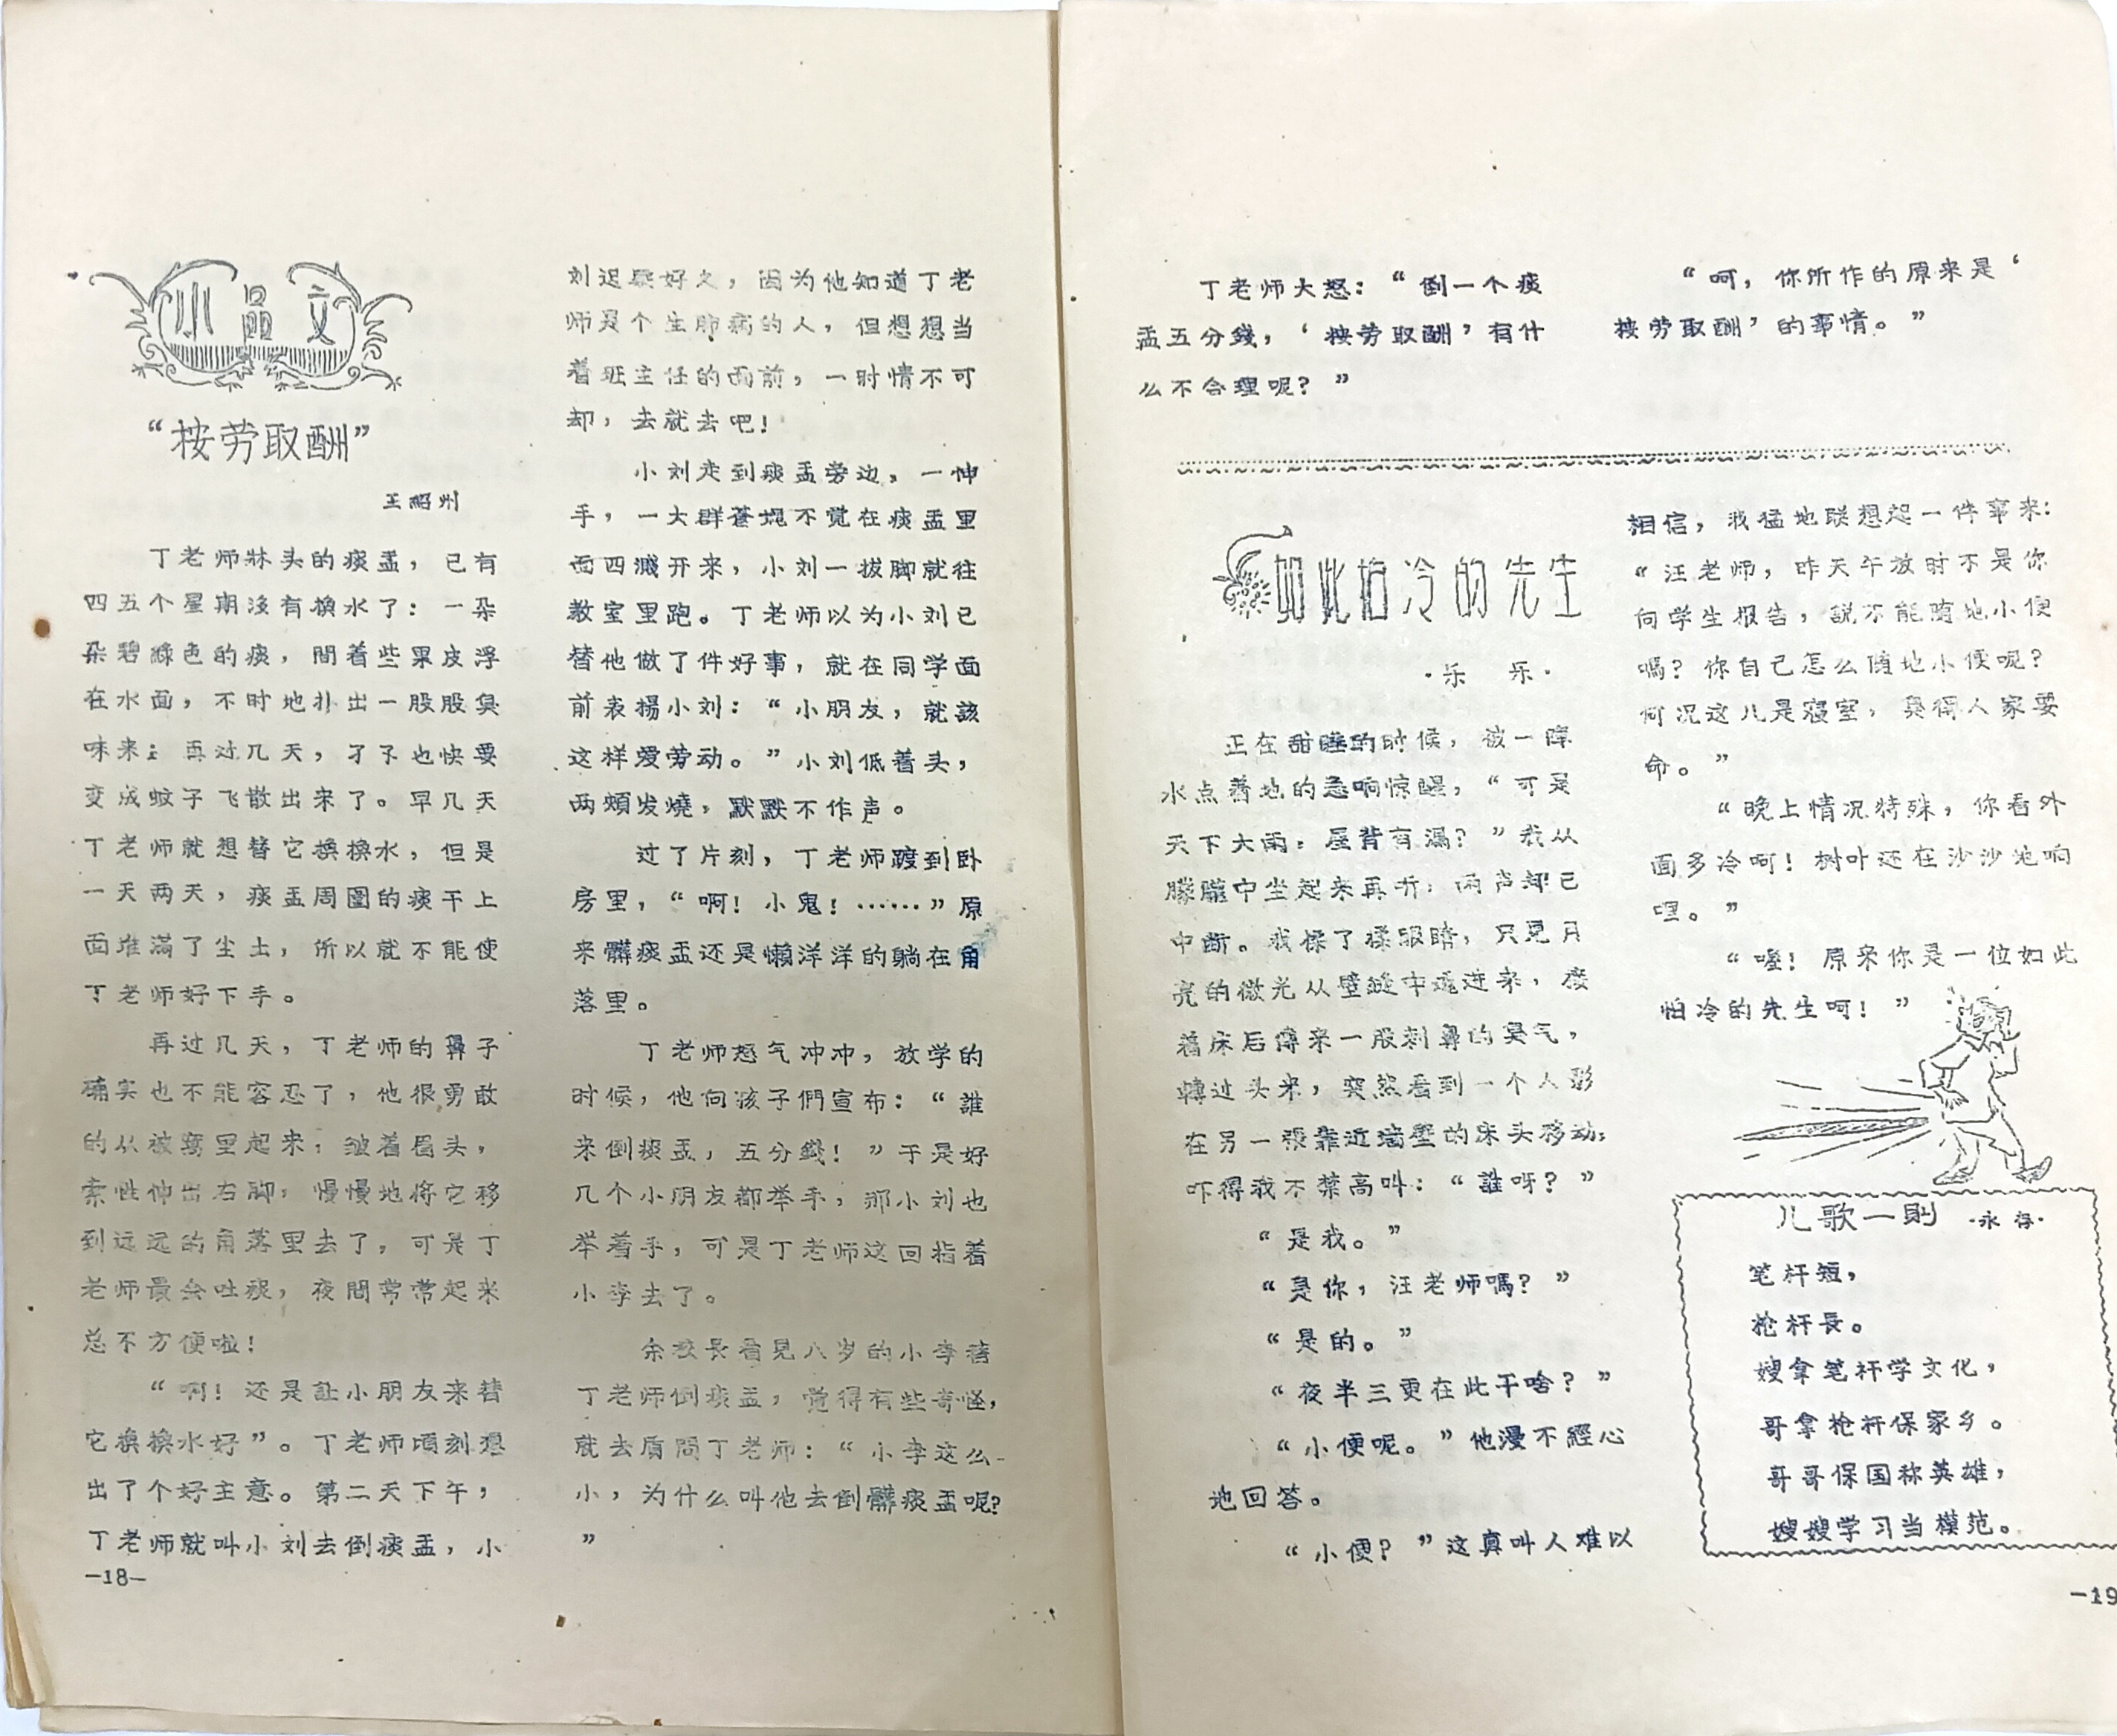 小品文
“按劳取酬”
王紹州
丁老师牀头的痰盂，已有
四五个星期没有换水了：一朵
朵碧綠色的痰，間着些果皮浮
在水面，不时地扑出一股股臭
味来；再过几天，孑孓也快要
变成蚊子飞散出来了。早几天
丁老师就想替它换换水，但是
一天两天，痰盂周圍的痰干上
面堆滿了尘土，所以就不能使
丁老师好下手。
再过几天，丁老师的鼻子
确实也不能容忍了，他很勇敢
的从被窝里起来；皱着眉头，
索性伸出右脚，慢慢地将它移
到远远的角落里去了，可是丁
老师最会吐痰，夜間常常起来
总不方便啦！
“啊！还是訨小朋友来替
它换换水好”。丁老师頃刻想
出了个好主意。第二天下午，
丁老师就叫小刘去倒痰盂，小
—18—
刘迟疑好久，因为他知道丁老
师是个生肺病的人，但想想当
着班主任的面前，一时情不可
却，去就去吧！
小刘走到痰盂旁边，一伸
手，一大群蒼蝇不觉在痰盂里
面四濺开来，小刘一拔脚就往
教室里跑。丁老师以为小刘已
替他做了件好事，就在同学面
前表揚小刘：“小朋友，就該
这样爱劳动。”小刘低着头，
两頰发燒，默默不作声。
过了片刻，丁老师踱到卧
房里，“啊！小鬼！……”原
来髒痰盂还是懒洋洋的躺在角
落里。
丁老师怒气冲冲，放学的
时候，他向孩子們宣布：“誰
来倒痰盂，五分錢！”于是好
几个小朋友都举手，那小刘也
举着手，可是丁老师这回指着
小李去了。
余校长看見八岁的小李替
丁老师倒痰盂，觉得有些奇怪，
就去盾問丁老师：“小李这么
小，为什么叫他去倒髒痰盂呢？
”
丁老师大怒：“倒一个痰
盂五分錢，‘按劳取酬’有什
么不合理呢？”
“呵，你所作的原来是‘
按劳取酬’的事情。”
如此怕冷的先生
·乐　乐·
正在甜睡的时候，被一陣
水点着地的急响惊醒，“可是
天下大雨，屋背有漏？”我从
朦朧中坐起来再听，雨声却已
中断。我揉了揉眼睛，只見月
亮的微光从壁縫中透进来，接
着床后傳来一股刺鼻的臭气，
轉过头来，突然看到一个人影
在另一張靠近墙壁的床头移动，
吓得我不禁高叫：“誰呀？”
“是我。”
“是你，汪老师嗎？”
“是的。”
“夜半三更在此干啥？”
“小便呢。”他漫不經心
地回答。
“小便？”这真叫人难以
相信，我猛地联想起一件事来：
“汪老师，昨天午放时不是你
向学生报告，說不能随地小便
嗎？你自己怎么随地小便呢？
何况这儿是寢室，臭得人家要
命。”
“晚上情况特殊，你看外
面多冷呵！树叶还在沙沙地响
哩。”
“噢！原来你是一位如此
怕冷的先生呵！”
儿歌一則　·永存·
笔杆短，
枪杆長。
嫂拿笔杆学文化，
哥拿枪杆保家乡。
哥哥保国称英雄，
嫂嫂学习当模范。
—19